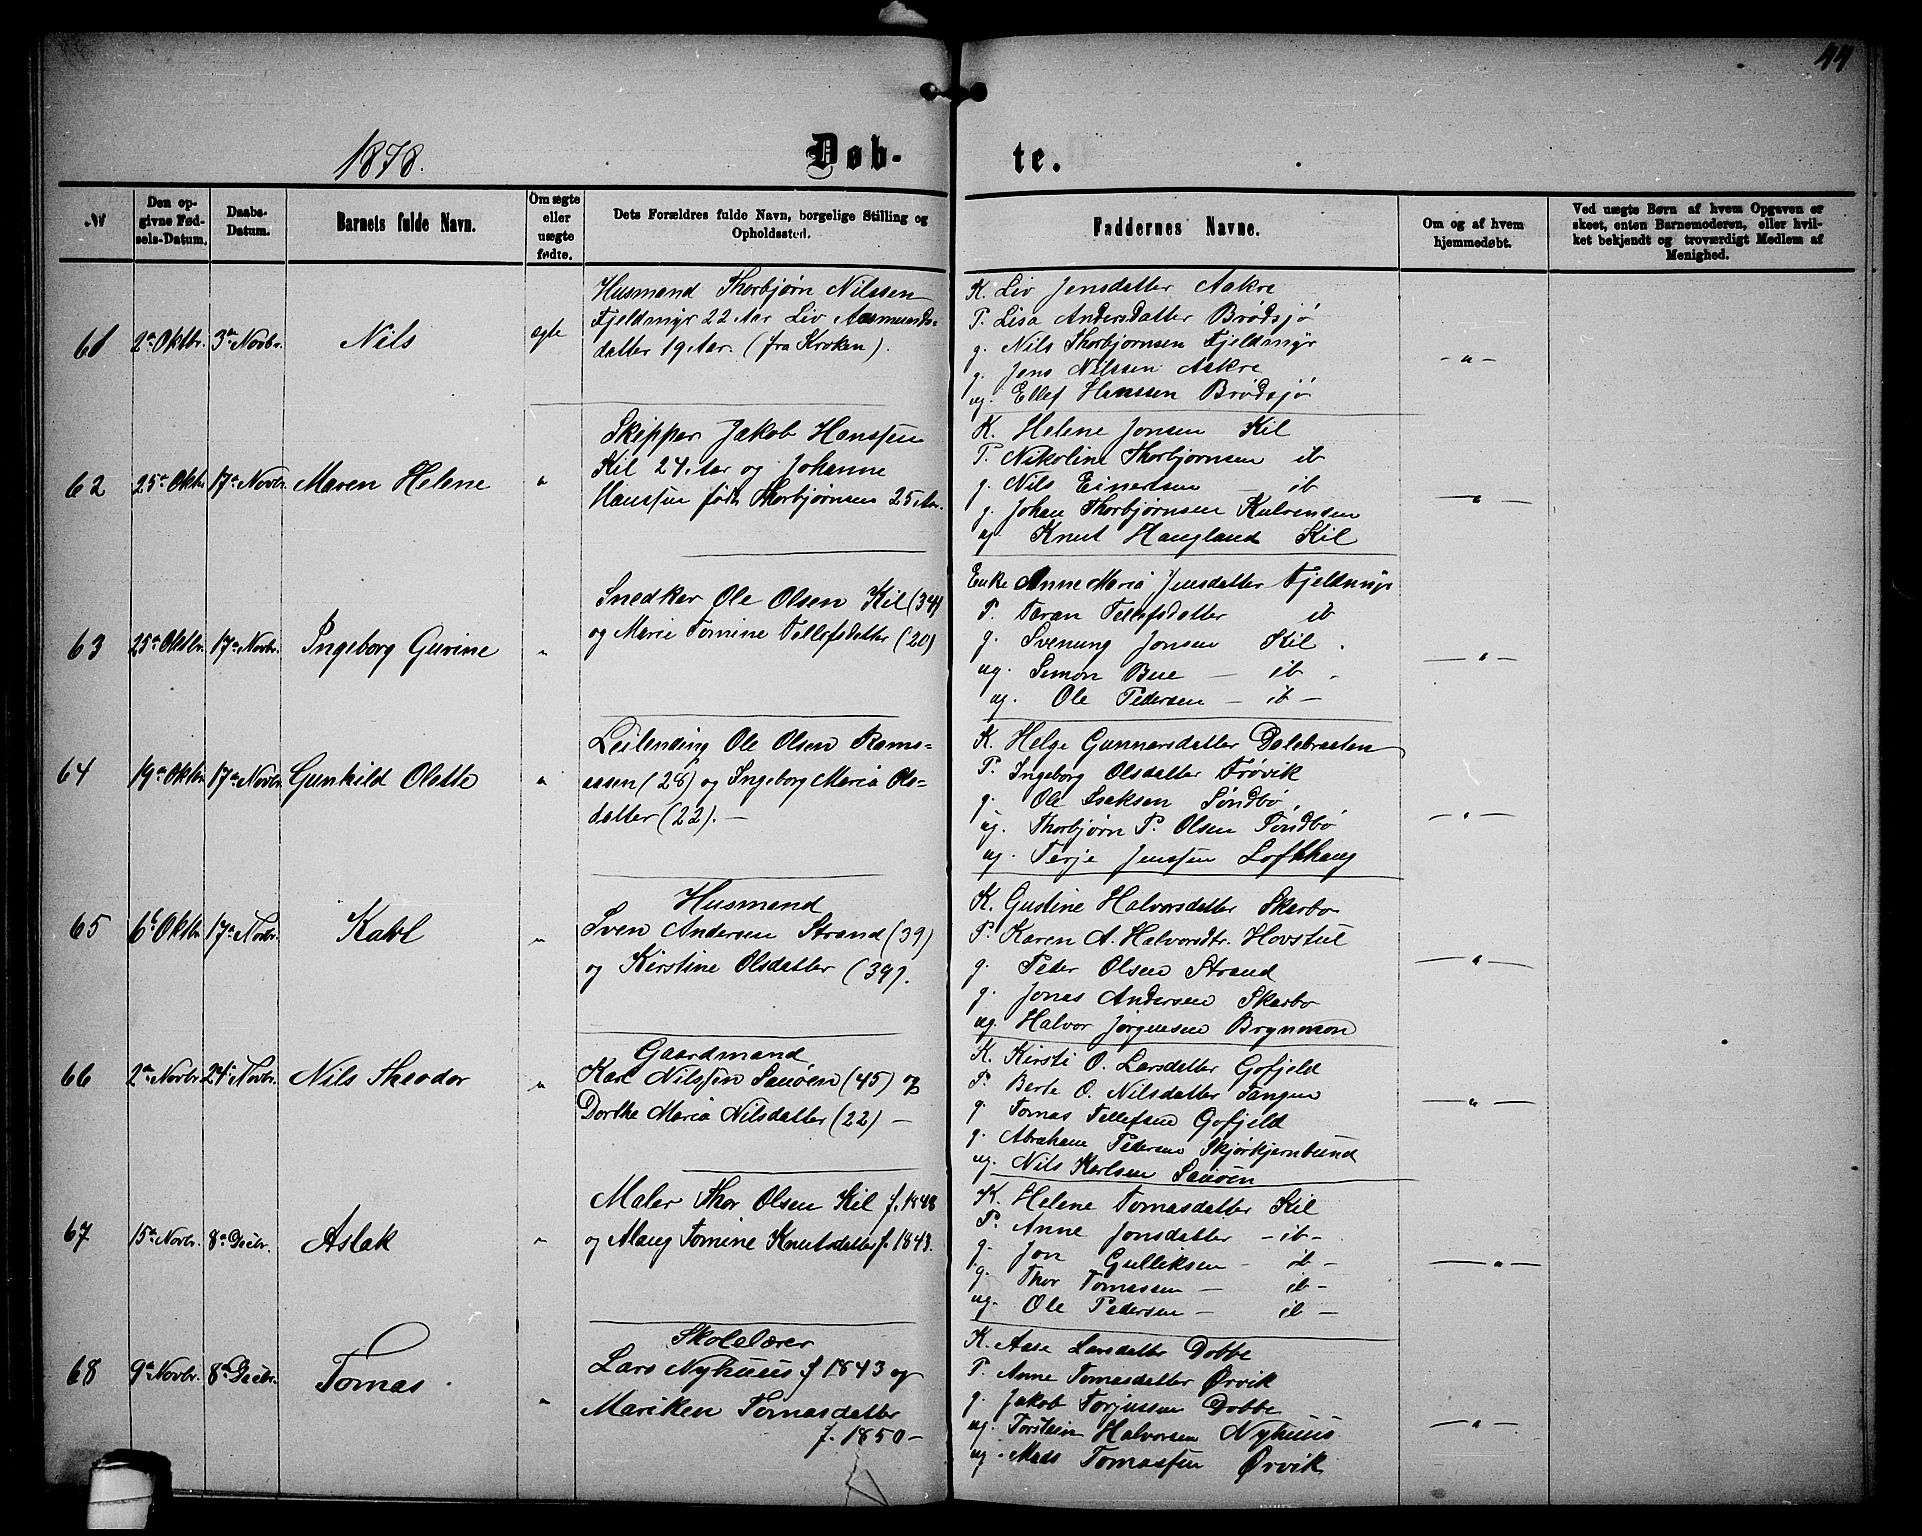 44
1878.
Døb-
te.
№
Den opgivne Fødsels-Datum.
Daabs-Datum.
Barnets fulde Navn.
Om ægte eller uægte fødte.
Dets Forældres fulde Navn, borgelige Stilling og Opholdssted.
Faddernes Navne.
Om og af hvem hjemmedøbt.
Ved uægte Børn af hvem Opgaven er skeet, enten Barnemoderen, eller hvilket bekjendt og troværdigt Medlem af Menighed.
61 2den Oktbr. 3de Novbr. Nils ægte
Husmand Thorbjørn Nilssen
Fjeldmyr 22 Aar Liv Aasmunds-
datter 19 Aar. (fra Kroken).
K. Liv Jensdatter Aakre
P. Lisa Andersdatter Brødsjø
g. Nils Thorbjørnsen Fjeldmyr
g. Jens Nilssen Aakre
ug. Ellef Hanssen Brødsjø
- " -
62 25de Oktbr. 17de Novbr. Maren Helene "
Skipper Jakob Hanssen
Kil 24 Aar og Johanne
Hanssen født Thorbjørnsen 25 Aar.
K. Helene Jonsen Kil
P. Nikoline Thorbjørnsen ib
g. Nils Einertsen - ib
g. Johan Thorbjørnsen Kulvensen
ug. Knut Haugland Kil
- " -
63 25de Oktbr. 17de Novbr. Ingeborg Guvine "
Snedker Ole Olsen Kil (34)
og Marie Tomine Tellefsdatter (20)
Enke Anne Maria Jensdatter Fjeldmyr
P. Taran Tellefsdatter ib
g. Svenung Jonsen Kil.
ug. Simon Bue - ib.
ug. Ole Pedersen - ib -
- " -
64 19de Oktbr. 17de Novbr. Gunhild Olette "
Leilending Ole Olsen Rams-
aasen (28) og Ingeborg Maria Ols-
datter (22). -
K. Helge Gunnarsdatter Dalebraaten
P. Ingeborg Olsdatter Frøvik
g. Ole Isaksen Sóndbø
ug. Thorbjørn P. Olsen Tóndbø
ug. Terje Jenssen Lofthaug
- " -
65 6te Oktbr. 17de Novbr. Karl "
Husmand
Sven Andersen Strand (39)
og Kirstine Olsdatter (39).
K. Gustine Halvorsdatter Skarbo
P. Karen A. Halvorsdtr. Hovstul
g. Peder Olsen Strand
g. Jonas Andersen Skarbo
ug. Halvor Jørgensen Brynmon
- " -
66 2den Novbr. 24de Novbr. Nils Theodor "
Gaardmand
Karl Nilssen Sauøen (45) og
Dorthe Maria Nilsdatter (22) -
K. Kirsti O. Larsdatter Gofjeld
P. Berte O. Nilsdatter Tangen
g. Tomas Tellefsen Gofjeld
g. Abraham Pedersen Skjørkjernbund
ug. Nils Karlsen Sauøen
- " -
67 15de Novbr. 8de Decbr. Aslak "
Maler Thor Olsen Kil f. 1848
og Maug Tomine Knutsdatter f. 1843.
K. Helene Tomasdatter Kil
P. Anne Jonsdatter - ib -
g. Jon Gulliksen - ib -
g. Thor Tomassen - ib -
ug. Ole Pedersen - ib -
- " -
68 9de Novbr. 8de Decbr. Tomas "
Skolelærer
Lars Nyhuus f. 1843 og
Mariken Tomasdatter
f. 1850 -
K. Aase Larsdatter Dobbe
P. Anne Tomasdatter Ørvik
g. Jakob Torjussen Dobbe
ug. Torstein Halvorsen Nyhuus
ug. Mads Tomassen Ørvik
- " -